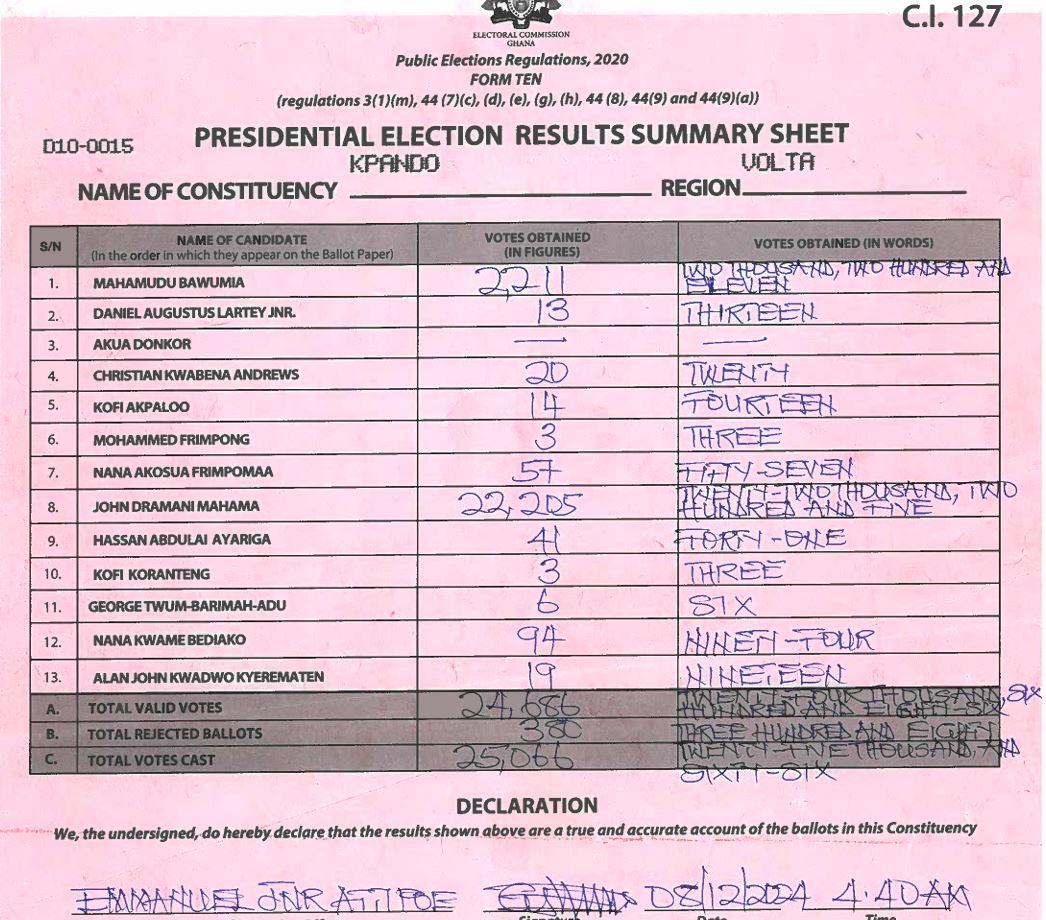 C.I. 127
ELECTORAL COMMISSION
GHANA
Public Elections Regulations, 2020
FORM TEN
(regulations 3(1)(m), 44 (7)(c), (d), (e), (g), (h), 44 (8), 44(9) and 44(9)(a))
D10-0015
PRESIDENTIAL ELECTION RESULTS SUMMARY SHEET
KPANDO VOLTA
NAME OF CONSTITUENCY REGION
S/N NAME OF CANDIDATE (In the order in which they appear on the Ballot Paper) VOTES OBTAINED (IN FIGURES) VOTES OBTAINED (IN WORDS)
1. MAHAMUDU BAWUMIA 2,211 TWO THOUSAND, TWO HUNDRED AND ELEVEN
2. DANIEL AUGUSTUS LARTEY JNR. 13 THIRTEEN
3. AKUA DONKOR — —
4. CHRISTIAN KWABENA ANDREWS 20 TWENTY
5. KOFI AKPALOO 14 FOURTEEN
6. MOHAMMED FRIMPONG 3 THREE
7. NANA AKOSUA FRIMPOMAA 57 FIFTY-SEVEN
8. JOHN DRAMANI MAHAMA 22,205 TWENTY-TWO THOUSAND, TWO HUNDRED AND FIVE
9. HASSAN ABDULAI AYARIGA 41 FORTY-ONE
10. KOFI KORANTENG 3 THREE
11. GEORGE TWUM-BARIMAH-ADU 6 SIX
12. NANA KWAME BEDIAKO 94 NINETY-FOUR
13. ALAN JOHN KWADWO KYEREMATEN 19 NINETEEN
A. TOTAL VALID VOTES 24,686 TWENTY-FOUR THOUSAND, SIX HUNDRED AND EIGHTY-SIX
B. TOTAL REJECTED BALLOTS 380 THREE HUNDRED AND EIGHTY
C. TOTAL VOTES CAST 25,066 TWENTY-FIVE THOUSAND, AND SIXTY-SIX
DECLARATION
We, the undersigned, do hereby declare that the results shown above are a true and accurate account of the ballots in this Constituency
EMMANUEL JNR ATTIPOE 08/12/2024 4:40AM
Signature Date Time